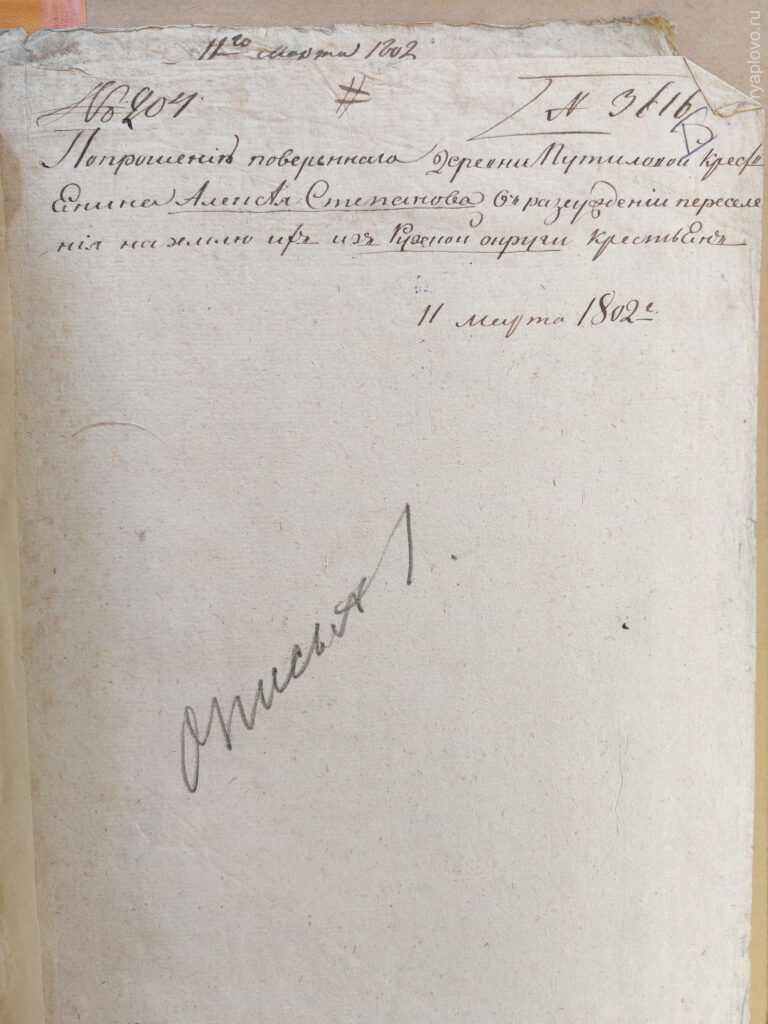 11го марта 1802
№ 204
#
N 3616
Попрошению поверенного деревни Путиловой крест
Енина Алексея Степанова Орозсуждении переселе
ния наземлю ихъ изъ Рузской округи крестьЕнъ
11 марта 1802 г
опись № 1.
ryaplovo.ru